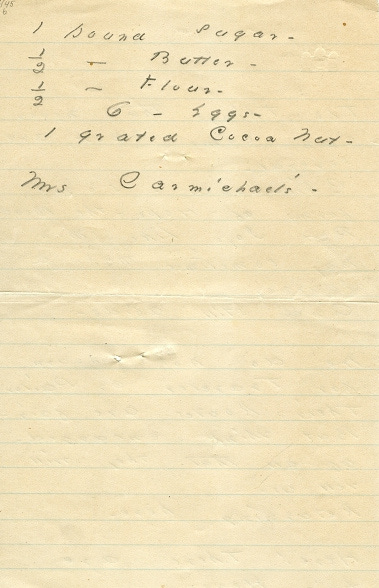 1 Pound Sugar -
1/2 - Butter -
1/2 - Flour -
6 - Eggs -
1 grated Cocoa Nut -
Mrs Carmichael's -